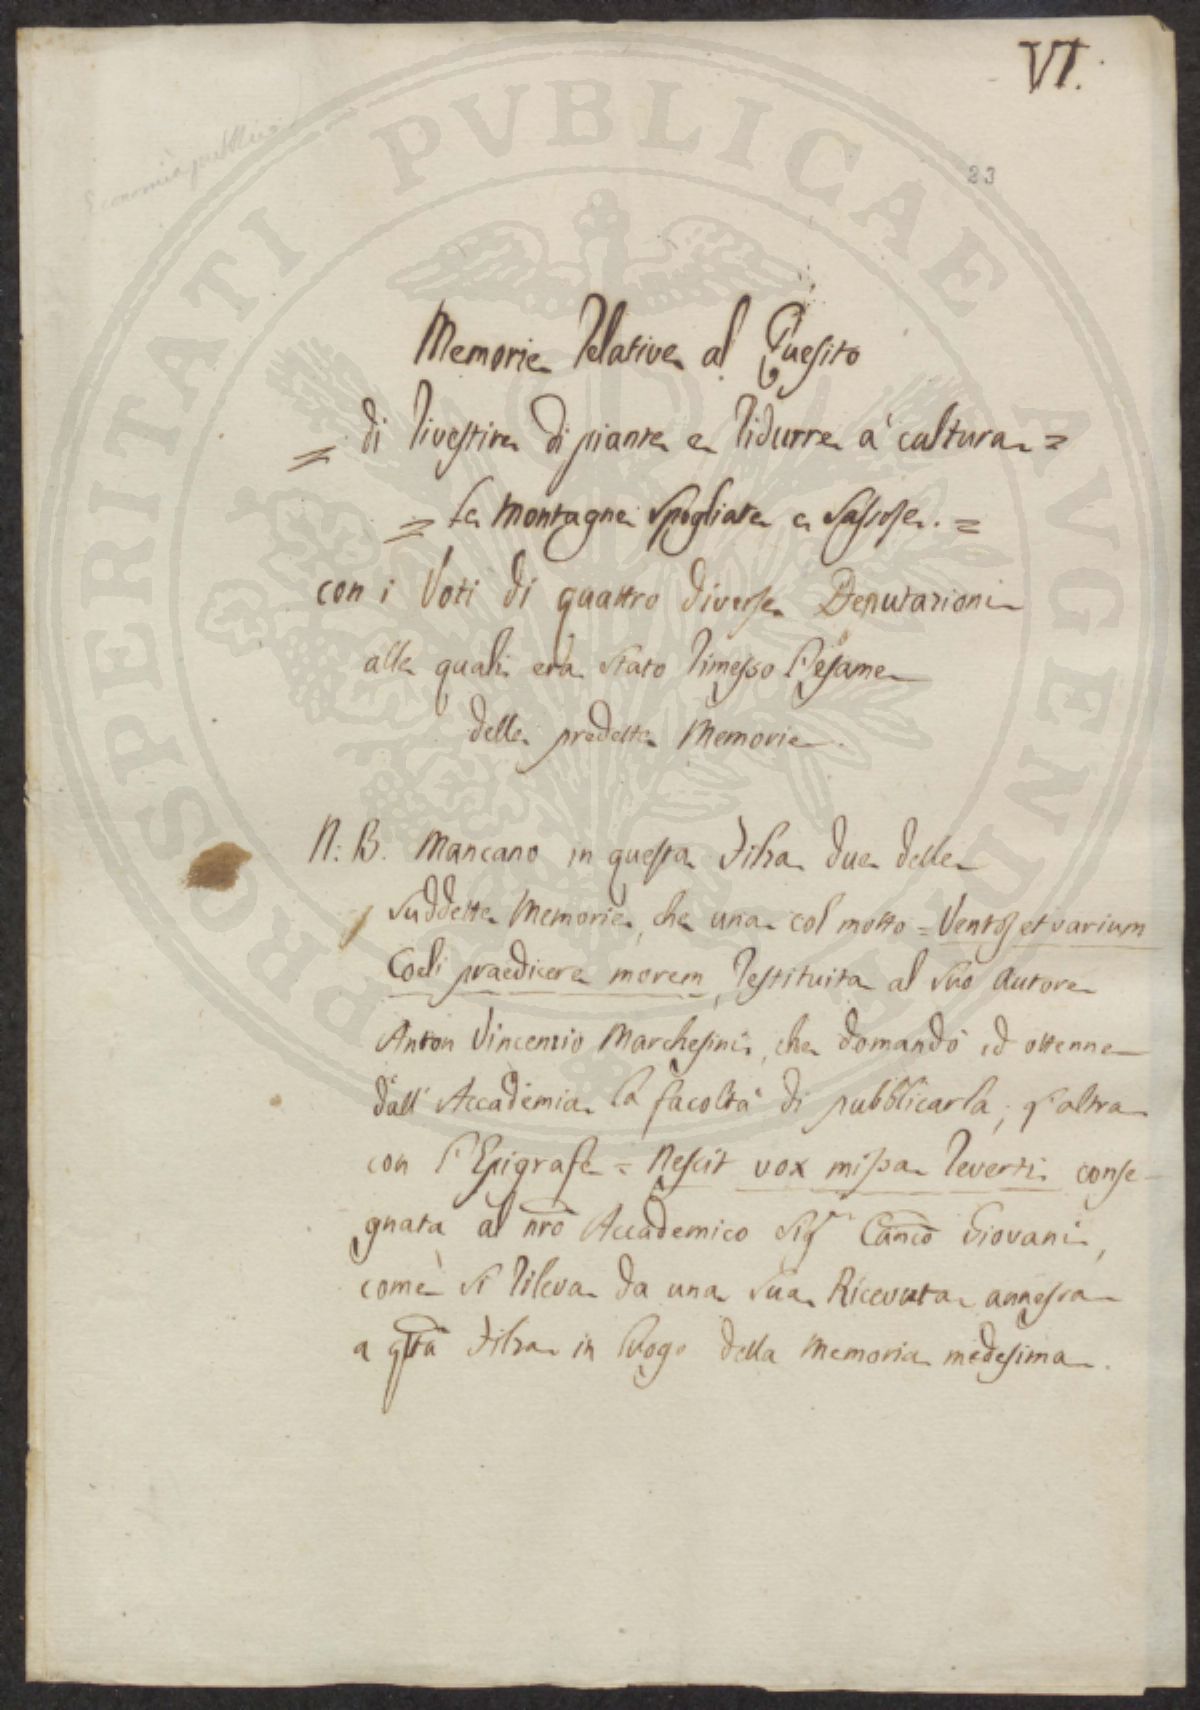 VI.
Economia pubblica
23
Memorie relative al Quesito
= di rivestire di piante e ridurre à cultura =
= le montagne spogliate e sassose. =
con i Voti di quattro diverse Deputazioni
alle quali era stato rimesso l'esame
delle predette Memorie.
N: B. Mancano in questa Filza due delle
suddette Memorie, che una col motto = Ventos et varium
Coeli praedicere morem, restituita al suo Autore
Anton Vincenzio Marchesini, che domandò ed ottenne
dall' Accademia la facoltà di pubblicarla; l'altra
con l'Epigrafe = Nescit vox missa reverti conse-
gnata al nro Accademico Sigr Canco Giovani,
come si rileva da una sua Ricevuta annessa
a qsta Filza in luogo della Memoria medesima.
PROSPERITATI PVBLICAE AVGENDAE